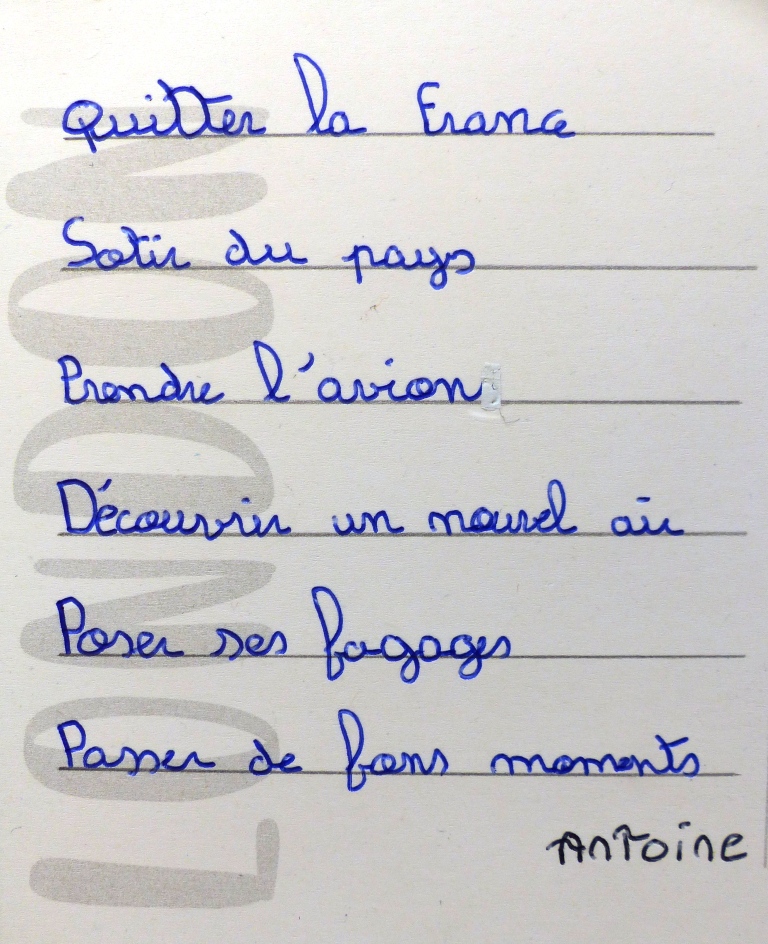 Quitter la France
Sotir du pays
Prendre l'avion
Découvrir un nouvel air
Poser ses bagages
Passer de bons moments
Antoine
LONDON